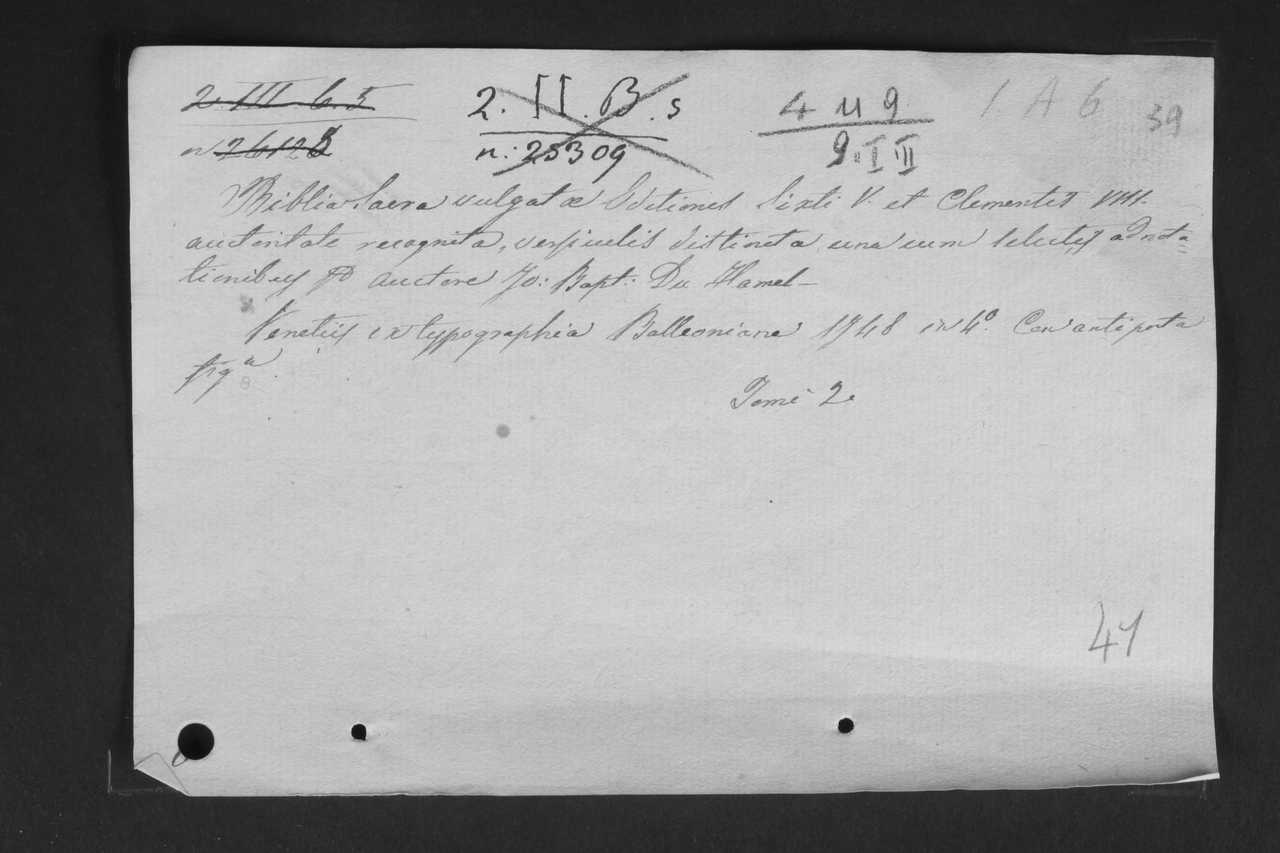 2. III 6. 5 2. II. B. s 4 M 9 1 A 6 39
n 26128 n: 25309 9. I II
Biblia Sacra vulgatæ Editionis Sixti V. et Clementis VIII.
auctoritate recognita, versiculis distincta una cum selectis adnota=
tionibus auctore Jo: Bapt: Du Hamel—
Venetiis ex typographia Balleoniana 1748 in 4º. Con antiporta
figª.
Tomi 2.
41